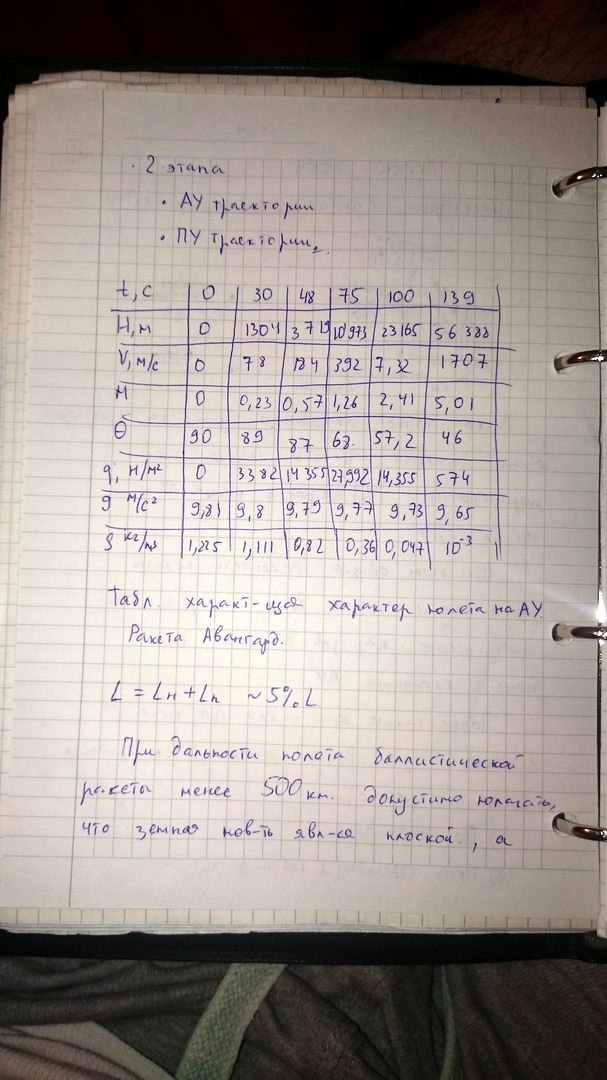 · 2 этапа
• АУ траектории
• ПУ траектории.
t, с 0 30 48 75 100 139
H, м 0 1304 3719 10973 23165 56388
V, м/с 0 78 184 392 7,32 1707
M 0 0,23 0,57 1,26 2,41 5,01
Θ 90 89 87 68. 57,2 46
q, н/м² 0 3382 14355 27,992 14,355 574
g м/с² 9,81 9,8 9,79 9,77 9,73 9,65
ρ кг/м³ 1,225 1,111 0,82 0,36 0,047 10⁻³
Табл. характ-щая характер полета на АУ.
Ракета Авангард.
L = Lн + Lп ~ 5% L
При дальности полета баллистической
ракеты менее 500 км. допустимо полагать,
что земная пов-ть явл-ся плоской, а